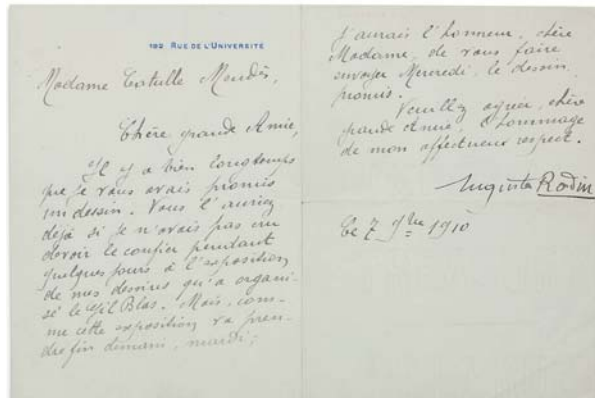 182 RUE DE L'UNIVERSITÉ
Madame Catulle Mendès,
Chère grande Amie,
Il y a bien longtemps
que je vous avais promis
un dessin. Vous l'auriez
déjà si je n'avais pas cru
devoir le confier pendant
quelques jours à l'exposition
de mes dessins qu'a organi-
sé le Gil Blas. Mais, com-
me cette exposition va pren-
dre fin demain, mardi,
j'aurais l'honneur, chère
Madame, de vous faire
envoyer Mercredi, le dessin
promis.
Veuillez agréer, chère
grande Amie, l'hommage
de mon affectueux respect.
Auguste Rodin
Ce 7 9bre 1910